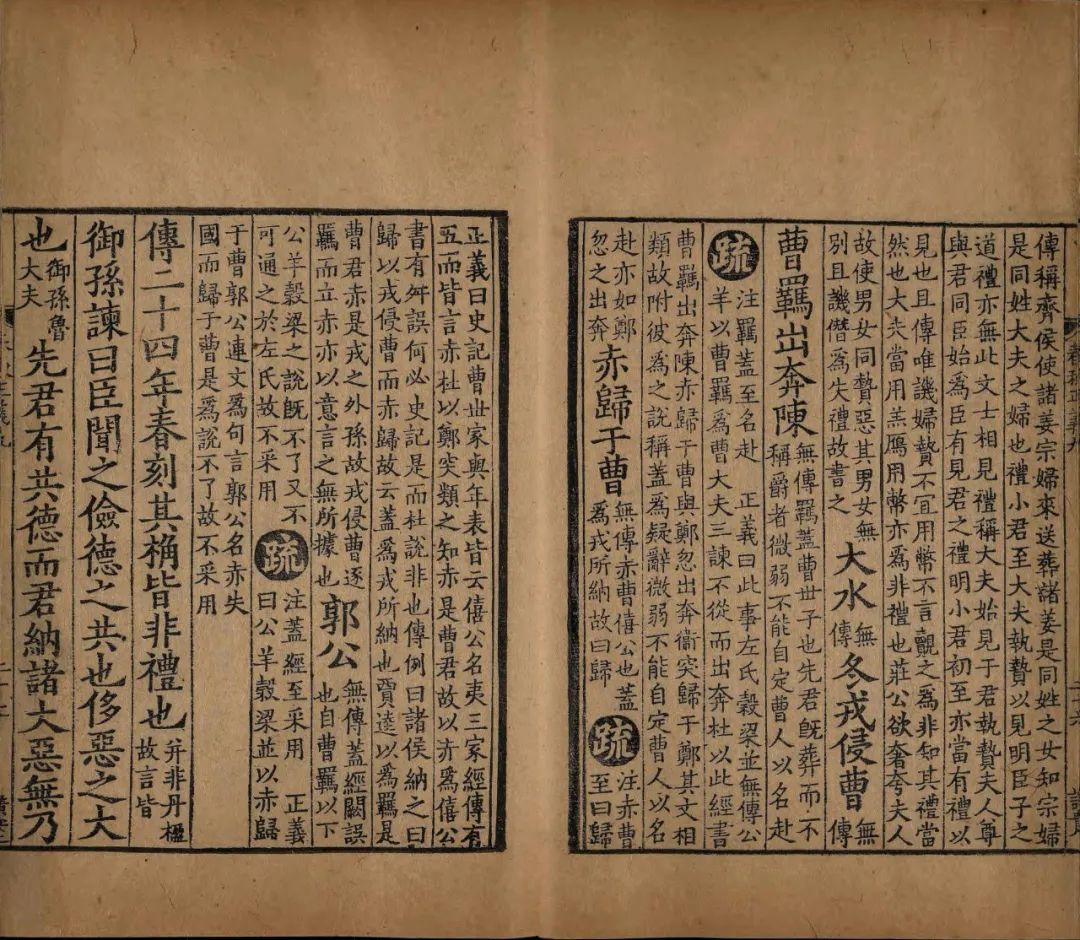 傳稱齊侯使諸姜宗婦來送葬諸姜是同姓之女知宗婦
是同姓大夫之婦也禮小君至大夫執贄以見明臣子之
道禮亦無此文士相見禮稱大夫始見于君執贄夫人尊
與君同臣始爲臣有見君之禮明小君初至亦當有禮以
見也且傳唯譏婦贄不宜用幣不言覿之爲非知其禮當
然也大夫當用羔鴈用幣亦爲非禮也莊公欲奢夸夫人
故使男女同贄惡其男女無別且譏僣爲失禮故書之大水無傳冬戎侵曹無傳
曹羈出奔陳無傳羈蓋曹世子也先君旣葬而不稱爵者微弱不能自定曹人以名赴
疏注羈蓋至名赴 正義曰此事左氏穀梁並無傳公羊以曹羈爲曹大夫三諫不從而出奔杜以此經書
曹羈出奔陳赤歸于曹與鄭忽出奔衞突歸于鄭其文相
類故附彼爲之說稱蓋爲疑辭微弱不能自定曹人以名
赴亦如鄭忽之出奔赤歸于曹無傳赤曹僖公也蓋爲戎所納故曰歸疏注赤曹至曰歸
正義曰史記曹世家與年表皆云僖公名夷三家經傳有
五而皆言赤杜以鄭突類之知赤是曹君故以赤爲僖公
書有舛誤何必史記是而杜說非也傳例曰諸侯納之曰
歸以戎侵曹而赤歸故云蓋爲戎所納也賈逵以爲羈是
曹君赤是戎之外孫故戎侵曹逐羈而立赤亦以意言之無所據也郭公無傳蓋經闕誤也自曹羈以下
公羊穀梁之說旣不了又不可通之於左氏故不采用疏注蓋經至采用 正義曰公羊穀梁並以赤歸
于曹郭公連文爲句言郭公名赤失
國而歸于曹是爲說不了故不采用
傳二十四年春刻其桷皆非禮也幷非丹楹故言皆
御孫諫曰臣聞之儉德之共也侈惡之大
也御孫魯大夫先君有共德而君納諸大惡無乃